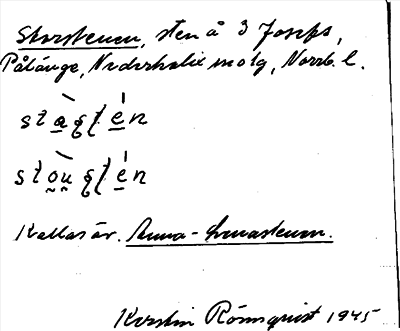 Storstenen, sten å 3 Josefs,
Pålänge, Nederkalix molg, Norrb. l.
stàqſtén
stòuqſtén
Kallas äv. Anna-Lenastenen.
Kerstin Rönnqvist 1945